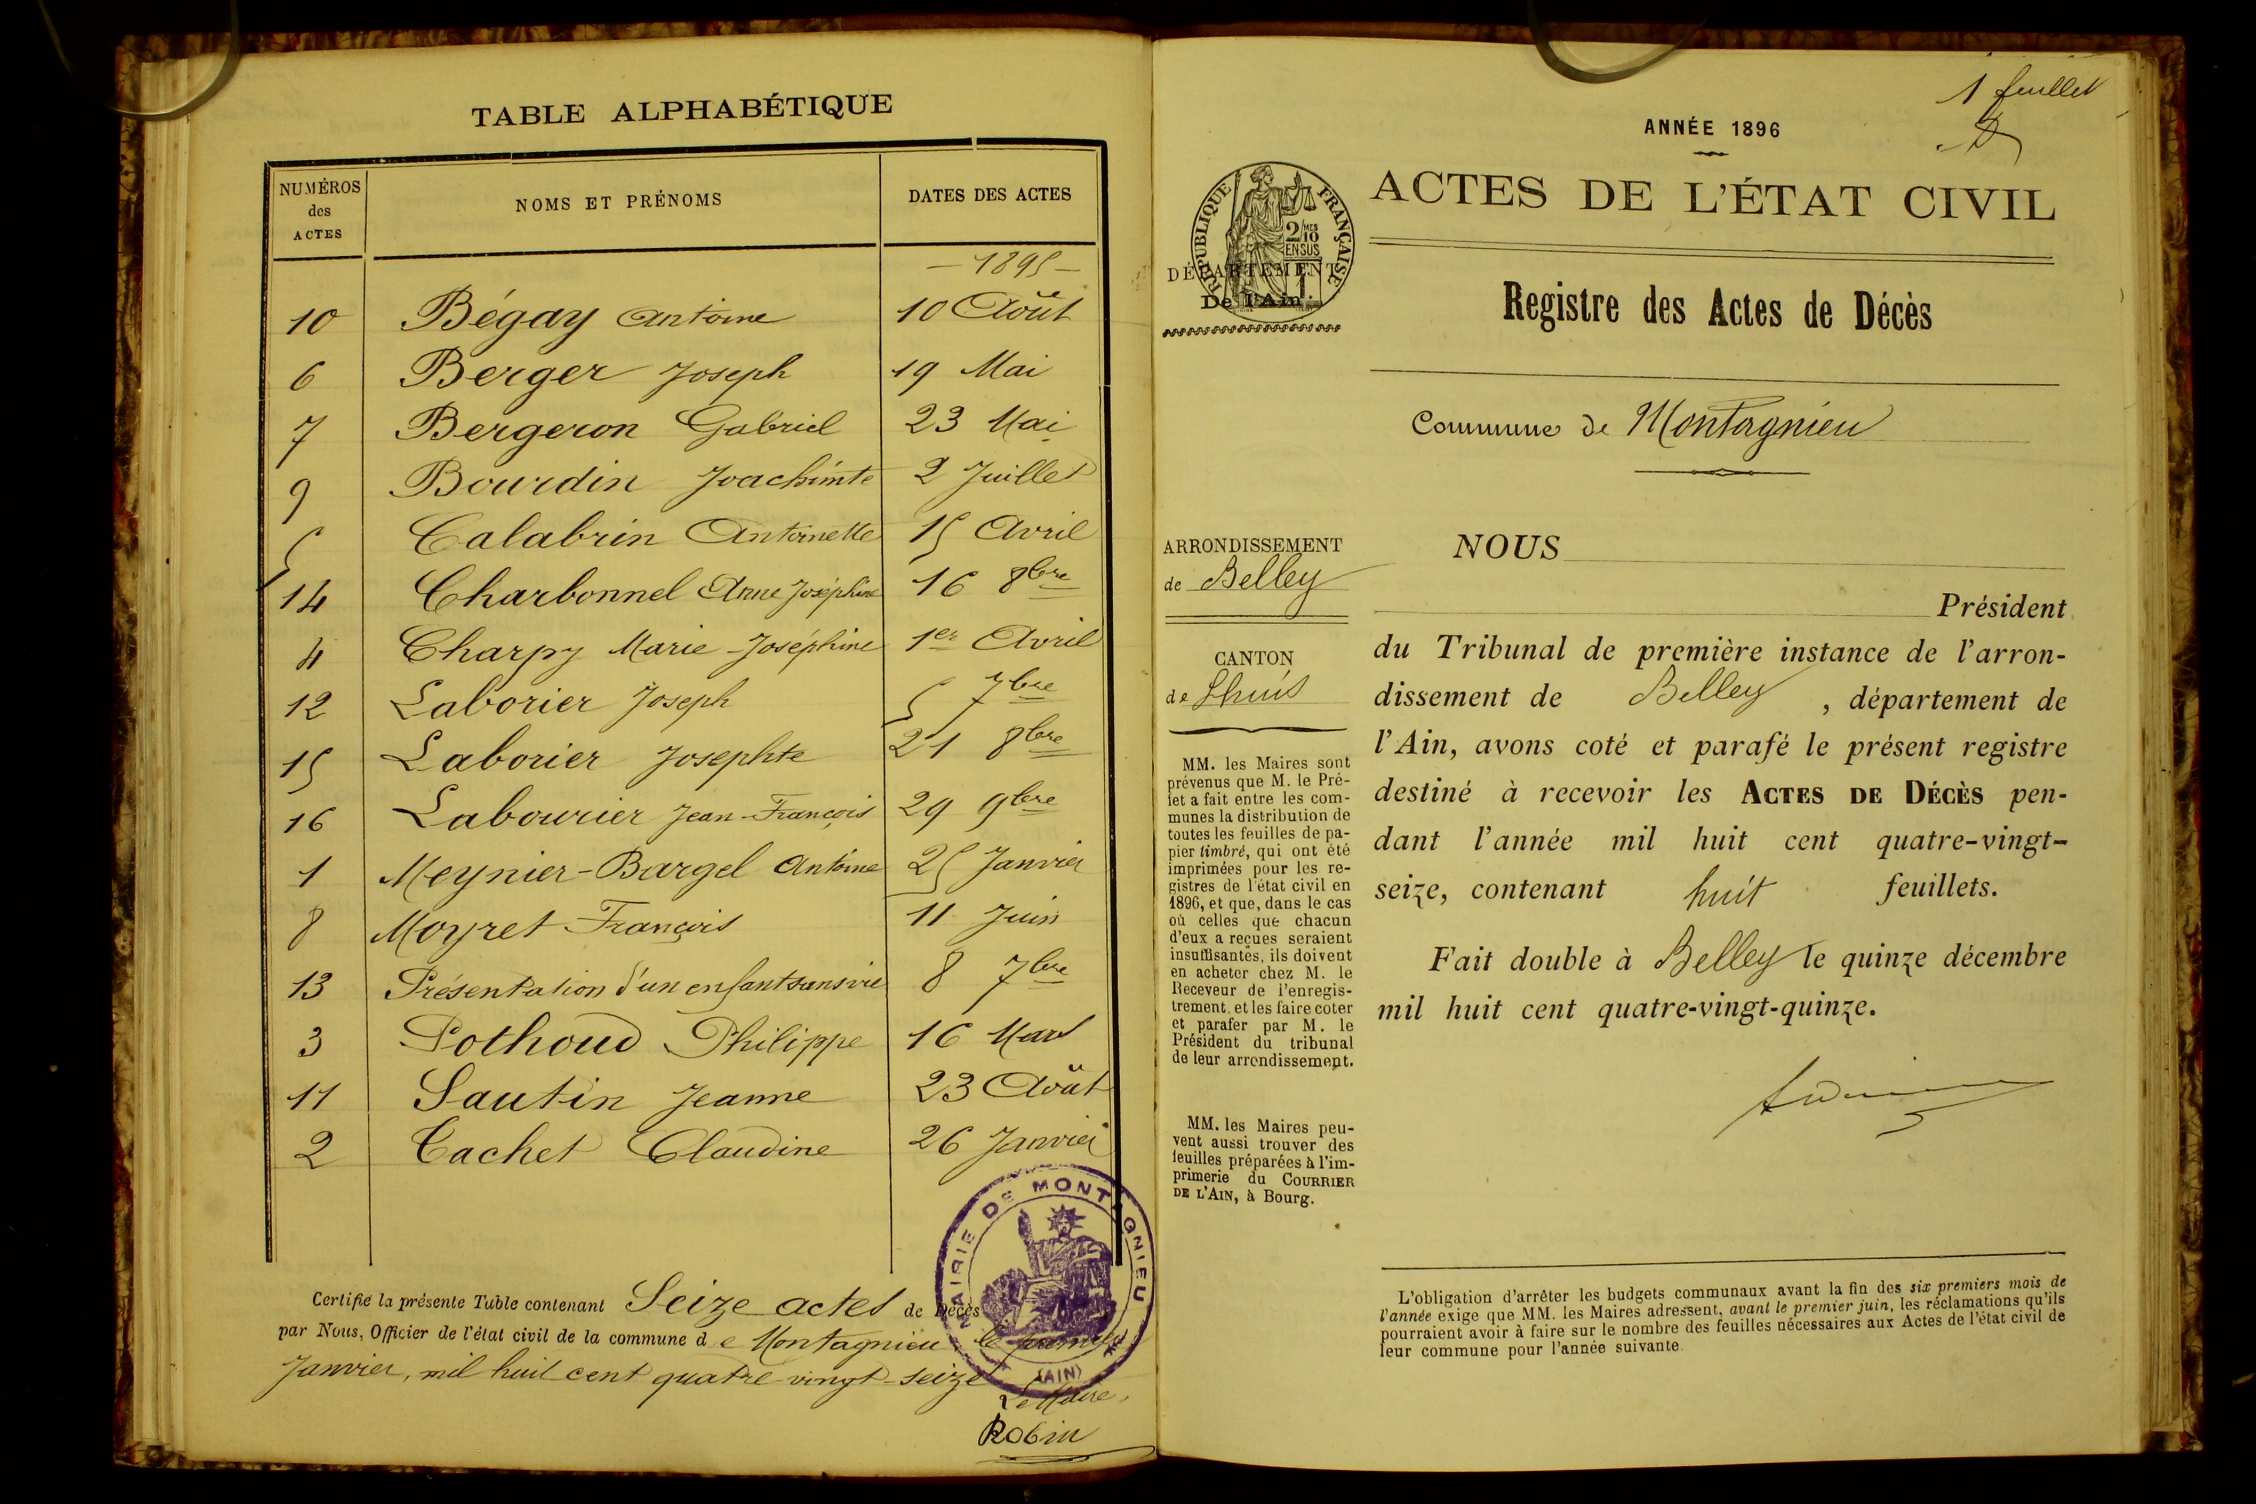 TABLE ALPHABÉTIQUE
NUMÉROS des ACTES NOMS ET PRÉNOMS DATES DES ACTES
— 1895 —
10 Bégay Antoine 10 Août
6 Berger Joseph 19 Mai
7 Bergeron Gabriel 23 Mai
9 Bourdin Joachimte 2 Juillet
5 Calabrin Antoinette 15 Avril
14 Charbonnel Anne Joséphine 16 8bre
4 Charpy Marie-Joséphine 1er Avril
12 Laborier Joseph 5 7bre
15 Laborier Josephte 21 8bre
16 Labourier Jean-François 29 9bre
1 Meynier-Bargel Antoine 25 Janvier
8 Moyret François 11 Juin
13 Présentation d'un enfant sans vie 8 7bre
3 Pothoud Philippe 16 Mars
11 Sautin Jeanne 23 Août
2 Tachet Claudine 26 Janvier
MAIRIE DE MONTAGNIEU
(AIN)
Certifié la présente Table contenant Seize actes de Décès
par Nous, Officier de l'état civil de la commune de Montagnieu le premier
Janvier, mil huit cent quatre-vingt-seize
Le Maire,
Robin
1 feuillet
ANNÉE 1896
ACTES DE L'ÉTAT CIVIL
RÉPUBLIQUE FRANÇAISE
2/10 MES
EN SUS
DÉPARTEMENT
De l'Ain.
Registre des Actes de Décès
Commune de Montagnieu
ARRONDISSEMENT
de Belley
CANTON
de Lhuis
MM. les Maires sont
prévenus que M. le Pré-
fet a fait entre les com-
munes la distribution de
toutes les feuilles de pa-
pier timbré, qui ont été
imprimées pour les re-
gistres de l'état civil en
1896, et que, dans le cas
où celles que chacun
d'eux a reçues seraient
insuffisantes, ils doivent
en acheter chez M. le
Receveur de l'enregis-
trement, et les faire coter
et parafer par M. le
Président du tribunal
de leur arrondissement.
MM. les Maires peu-
vent aussi trouver des
feuilles préparées à l'im-
primerie du COURRIER
DE L'AIN, à Bourg.
NOUS
Président
du Tribunal de première instance de l'arron-
dissement de Belley, département de
l'Ain, avons coté et parafé le présent registre
destiné à recevoir les ACTES DE DÉCÈS pen-
dant l'année mil huit cent quatre-vingt-
seize, contenant huit feuillets.
Fait double à Belley le quinze décembre
mil huit cent quatre-vingt-quinze.
L'obligation d'arrêter les budgets communaux avant la fin des six premiers mois de
l'année exige que MM. les Maires adressent, avant le premier juin, les réclamations qu'ils
pourraient avoir à faire sur le nombre des feuilles nécessaires aux Actes de l'état civil de
leur commune pour l'année suivante.